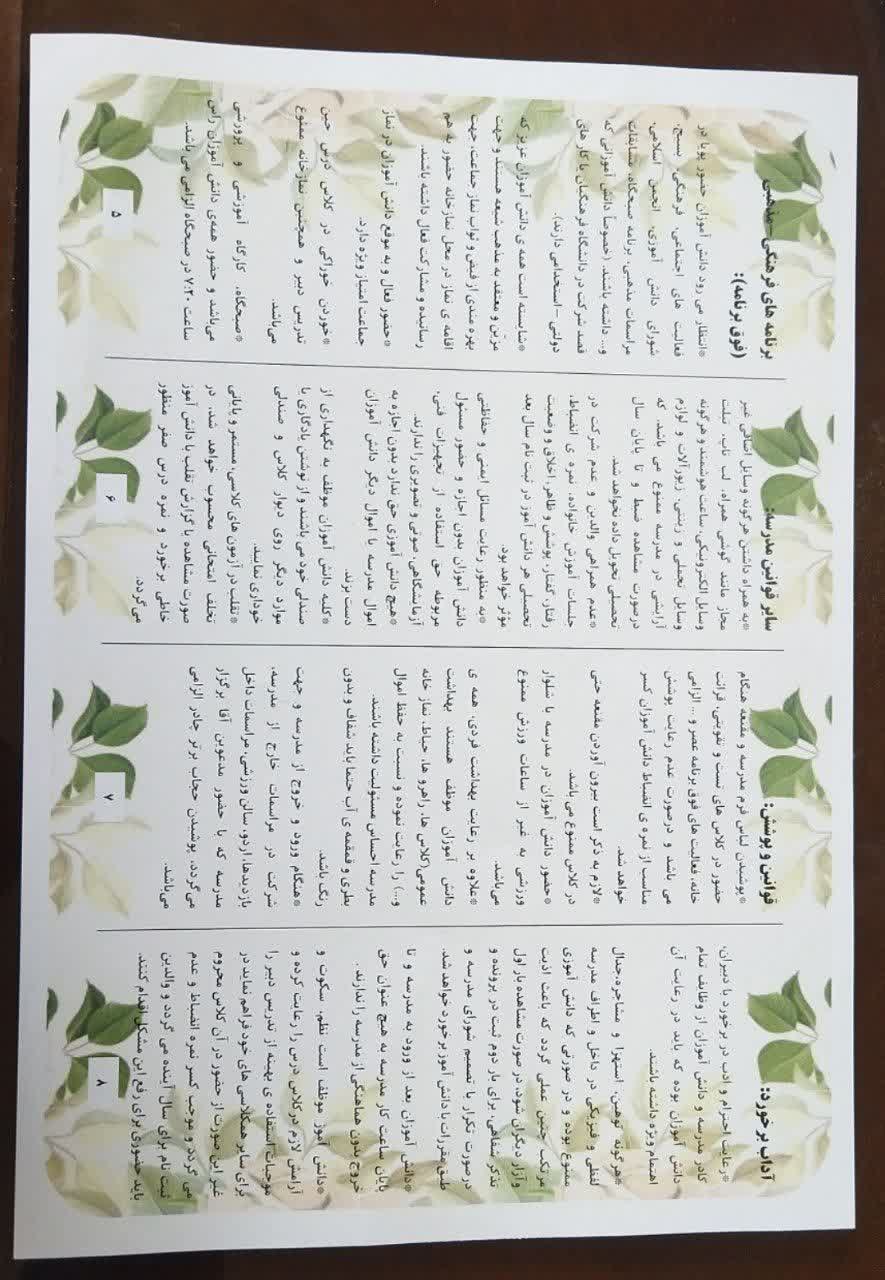 برنامه های فرهنگی –مذهبی
(فوق برنامه):
*انتظار می رود دانش آموزان حضور پویا در
فعالیت های اجتماعی، فرهنگی، بسیج،
شورای دانش آموزی، انجمن اسلامی،
مراسمات مذهبی، برنامه صبحگاه، مسابقات
و... داشته باشند. (خصوصاً دانش آموزانی که
قصد شرکت در دانشگاه فرهنگیان یا کار های
دولتی – استخدامی دارند).
*شایسته است همه ی دانش آموزان عزیز که
مزیّن و معتقد به مذهب شیعه هستند و جهت
بهره مندی از فیض و ثواب نماز جماعت، جهت
اقامه ی نماز در محل نمازخانه حضور به هم
رسانیده و مشارکت فعال داشته باشند.
*حضور فعال و به موقع دانش آموزان در نماز
جماعت امتیاز ویژه دارد.
*خوردن خوراکی در کلاس درس حین
تدریس دبیر و همچنین نمازخانه ممنوع
می‌باشد.
*صبحگاه، کارگاه آموزشی و پرورشی
می‌باشد و حضور همه‌ی دانش آموزان راس
ساعت ۷:۳۰ در صبحگاه الزامی می باشد.
۵
سایر قوانین مدرسه:
*به همراه داشتن هرگونه وسایل اضافی غیر
مجاز مانند گوشی همراه، لب تاب، تبلت
وسایل الکترونیکی، ساعت هوشمند و هرگونه
وسایل تجملی و زینتی، زیورآلات و لوازم
آرایشی در مدرسه ممنوع می باشد، که
درصورت مشاهده ضبط و تا پایان سال
تحصیلی تحویل داده نخواهد شد.
*عدم همراهی والدین و عدم شرکت در
جلسات آموزش خانواده، نمره ی انضباط،
رفتار، گفتار، پوشش و ظاهر، اخلاق و وضعیت
تحصیلی هر دانش آموز در ثبت نام سال بعد
مؤثر خواهد بود.
*به منظور رعایت مسائل ایمنی و حفاظتی
دانش آموزان بدون اجازه و حضور مسئول
مربوطه حق استفاده از تجهیزات فنی،
آزمایشگاهی، صوتی و تصویری را ندارند.
*هیچ دانش آموزی حق ندارد بدون اجازه به
اموال مدرسه یا اموال دیگر دانش آموزان
دست بزند.
*کلیه دانش آموزان موظف به نگهداری از
صندلی خود می باشند و از نوشتن یادگاری یا
موارد دیگر روی دیوار کلاس و صندلی
خودداری نمایند.
*تقلب در آزمون های کلاسی، مستمر و پایانی
تخلف امتحانی محسوب خواهد شد. در
صورت مشاهده یا گزارش تقلب با دانش آموز
خاطی برخورد و نمره درس صفر منظور
می گردد.
۶
قوانین و پوشش:
*پوشیدن لباس فرم مدرسه و مقنعه هنگام
حضور در کلاس های تست و تقویتی، قرائت
خانه، فعالیت های فوق برنامه عصر و ... الزامی
می باشد و درصورت عدم رعایت پوشش
مناسب از نمره ی انضباط دانش آموزان کسر
خواهد شد.
*لازم به ذکر است بیرون آوردن مقنعه حتی
در کلاس ممنوع می باشد.
*حضور دانش آموزان در مدرسه با شلوار
ورزشی به غیر از ساعات ورزش ممنوع
می‌باشد.
*علاوه بر رعایت بهداشت فردی، همه ی
دانش آموزان موظف هستند بهداشت
عمومی(کلاس ها، راهرو ها، حیاط، نماز خانه
و...) را رعایت نموده و نسبت به حفظ اموال
مدرسه احساس مسئولیت داشته باشند.
بطری و قمقمه ی آب حتما باید شفاف و بدون
رنگ باشد.
*هنگام ورود و خروج از مدرسه و جهت
شرکت در مراسمات خارج از مدرسه،
بازدیدها، اردو، سالن ورزشی، مراسمات داخل
مدرسه که با حضور مدعوین آقا برگزار
می‌گردد، پوشیدن حجاب برتر چادر الزامی
می‌باشد.
۷
آداب برخورد:
*رعایت احترام و ادب در برخورد با دبیران،
کادر مدرسه و دانش آموزان از وظایف تمام
دانش آموزان بوده که باید در رعایت آن
اهتمام ویژه داشته باشند.
*هرگونه توهین، استهزا و مشاجره،جدال
لفظی و فیزیکی در داخل و اطراف مدرسه
ممنوع بوده و در صورتی که دانش آموزی
مرتکب چنین عملی گردد که باعث اذیت
وآزار دیگران شود، در صورت مشاهده بار اول
تذکر شفاهی، برای بار دوم ثبت در پرونده و
درصورت تکرار با تصمیم شورای مدرسه و
طبق مقررات با دانش آموز برخورد خواهد شد.
*دانش آموزان بعد از ورود به مدرسه و تا
پایان ساعت کار مدرسه به هیچ عنوان حق
خروج بدون هماهنگی از مدرسه را ندارند .
*دانش آموز موظف است نظم، سکوت و
آرامش لازم در کلاس درس را رعایت کرده و
موجبات استفاده ی بهینه از تدریس دبیر را
برای سایر همکلاسی های خود فراهم نماید در
غیر این صورت از حضور در آن کلاس محروم
می گردد و موجب کسر نمره انضباط و عدم
ثبت نام برای سال آینده می گردد و والدین
باید حضوری برای رفع این مشکل اقدام کنند.
۸